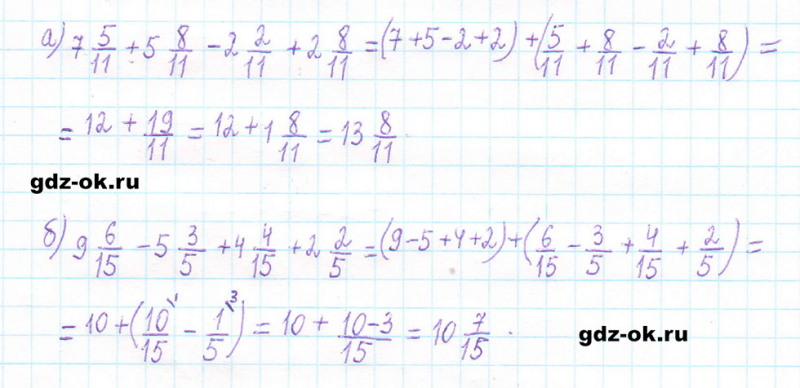 а) 7 5/11 + 5 8/11 - 2 2/11 + 2 8/11 = (7+5-2+2) + (5/11 + 8/11 - 2/11 + 8/11) =
= 12 + 19/11 = 12 + 1 8/11 = 13 8/11
gdz-ok.ru
б) 9 6/15 - 5 3/5 + 4 4/15 + 2 2/5 = (9-5+4+2) + (6/15 - 3/5 + 4/15 + 2/5) =
= 10 + (10/15 \1 - 1/5 \3) = 10 + 10-3/15 = 10 7/15 .
gdz-ok.ru